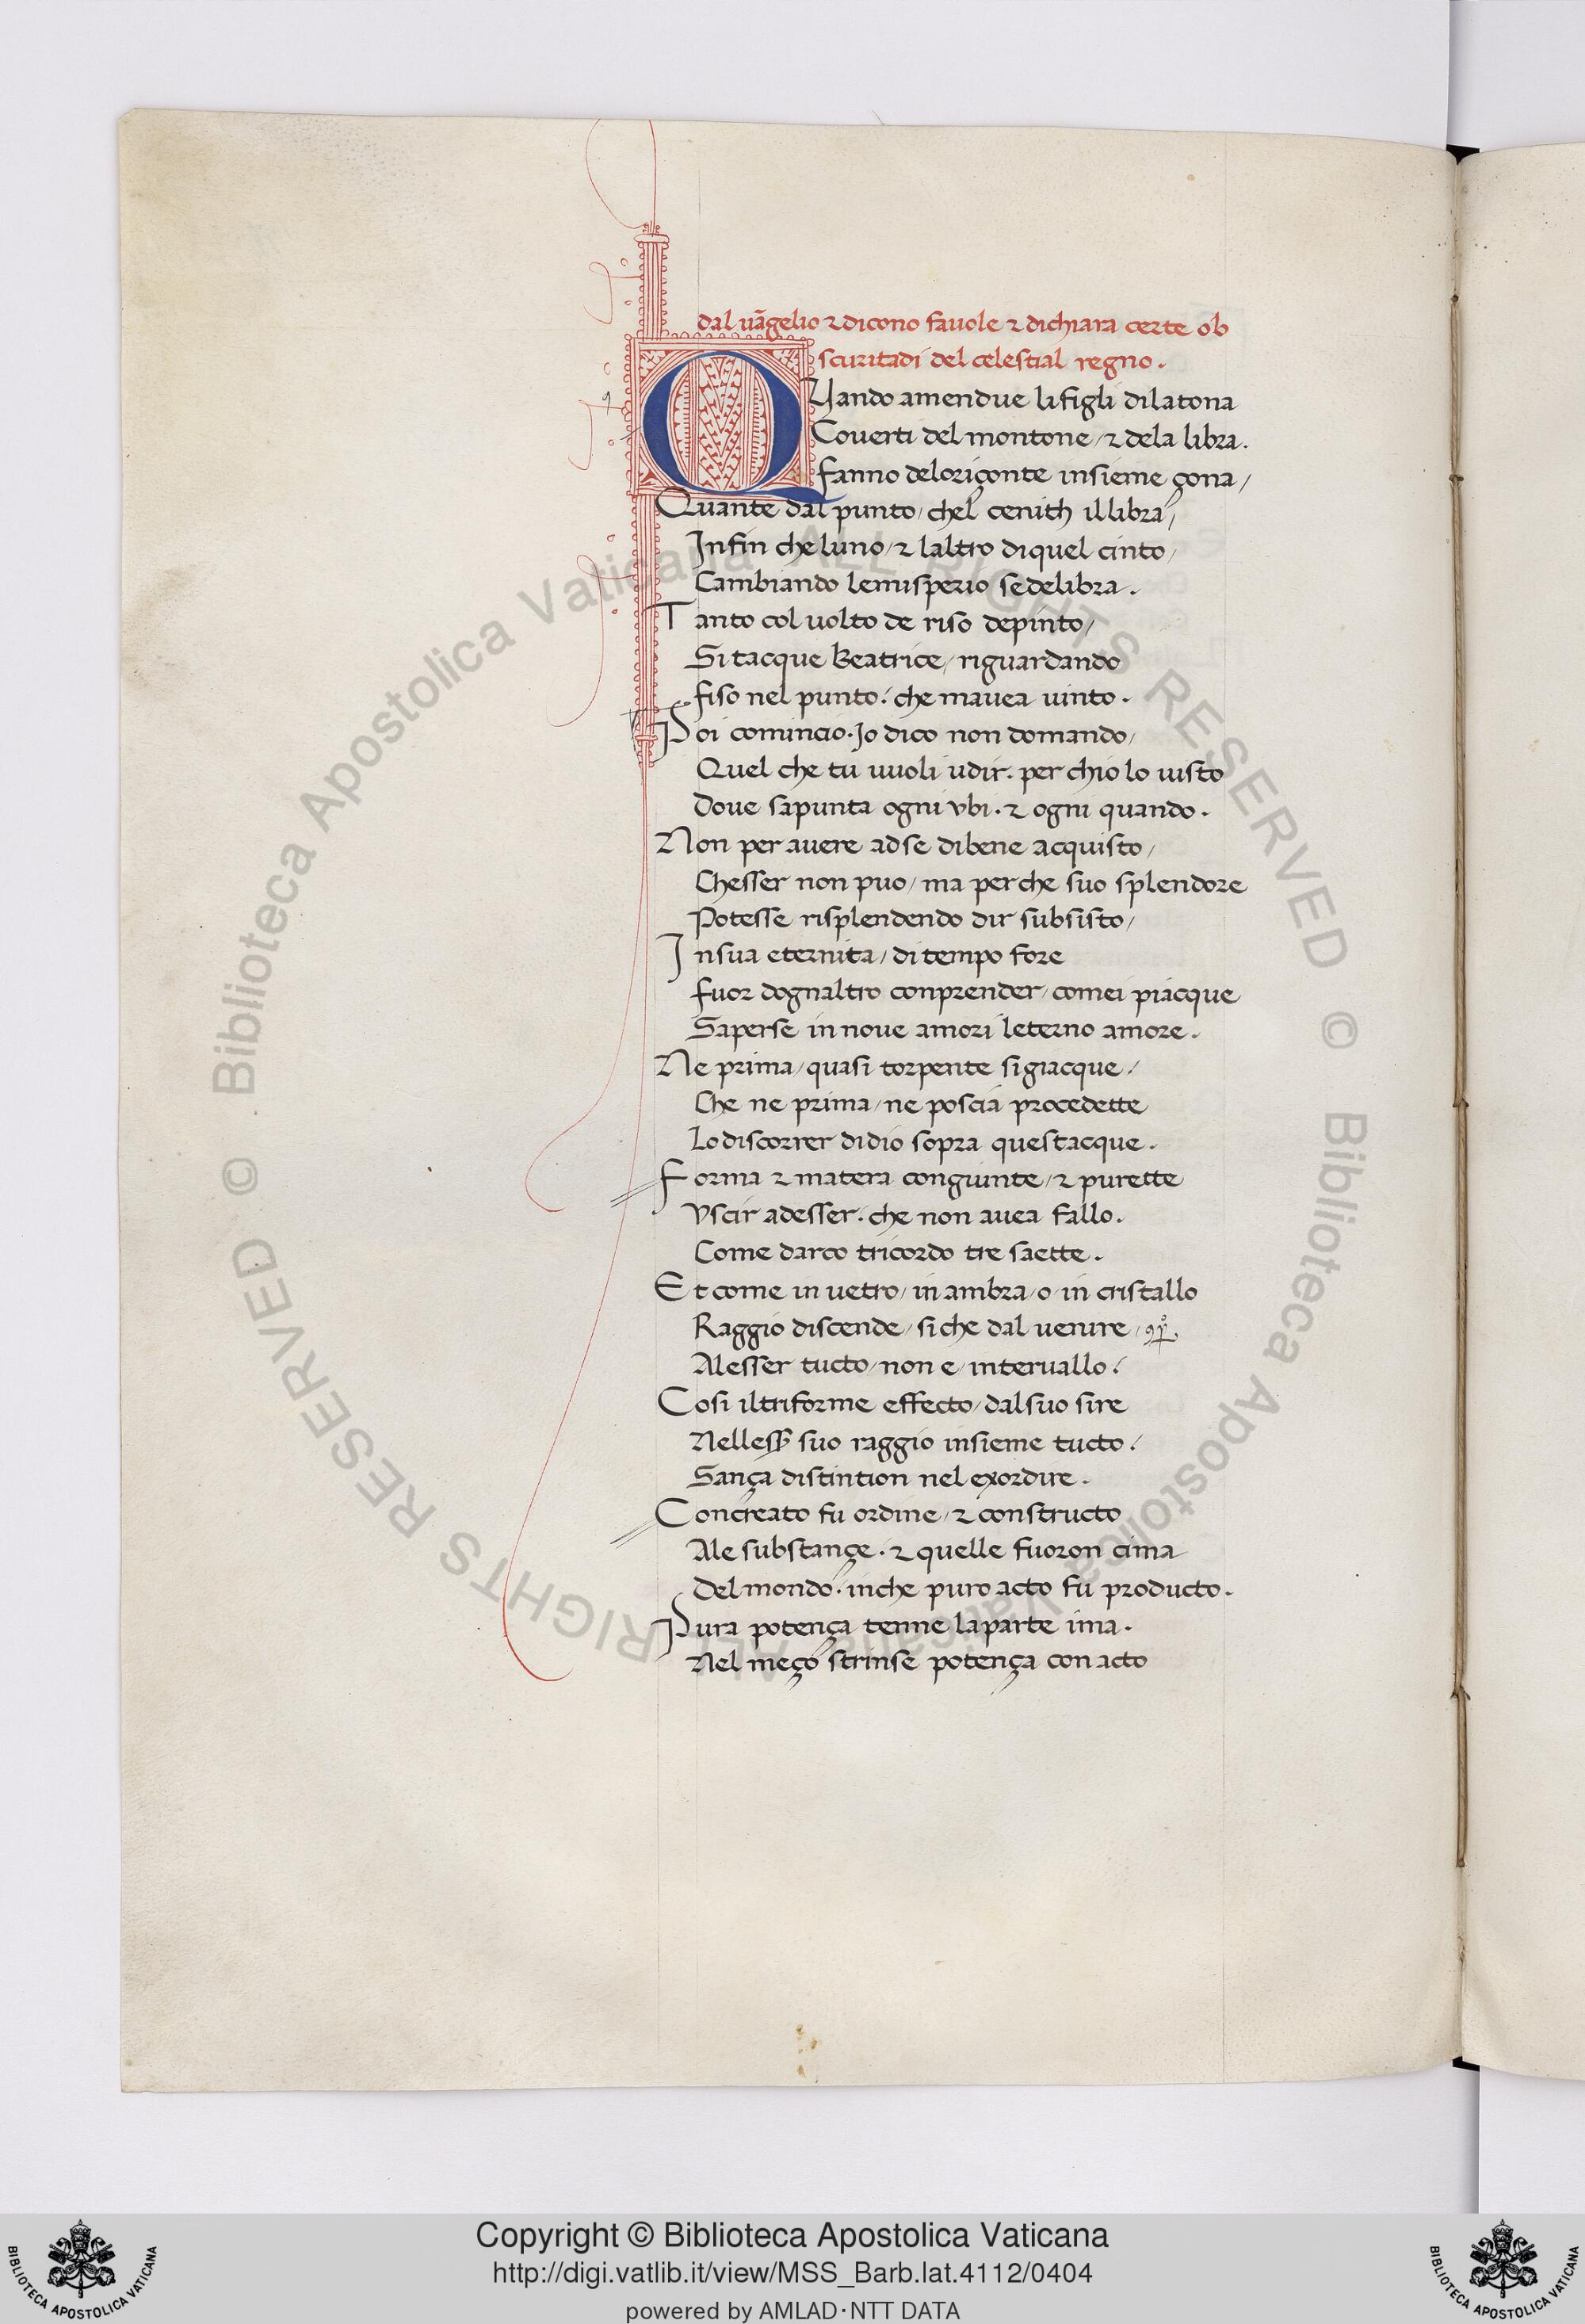 dal vãgelio ⁊ dicono favole ⁊ dichiara certe ob
scuritadi del celestial regno.
QUando amendue li figli di latona
Coverti del montone / ⁊ de la libra.
fanno del oriçonte insieme çona /
Quante dal punto / chel cenith il libra /
Infin che luno / ⁊ laltro di quel cinto /
Cambiando lemisperio se delibra.
Tanto col volto de riso depinto /
Si tacque Beatrice / riguardando
fiso nel punto / che mavea vinto.
Poi comincio. Io dico non domando /
Quel che tu vuoli udir. per chio lo visto
Dove sapunta ogni vbi. ⁊ ogni quando.
Non per avere ad se di bene acquisto /
Chesser non puo / ma perche suo splendore
Potesse risplendendo dir subsisto /
In sua eternita / di tempo fore
fuor dognaltro conprender / come i piacque
Saperse in nove amori leterno amore.
Ne prima / quasi torpente si giacque /
Che ne prima / ne poscia procedette
Lo discorrer di dio sopra questacque.
Forma ⁊ matera congiunte / ⁊ purette
Vscir adesser. che non avea fallo.
Come darco tricordo tre saette.
Et come in vetro / in ambra / o / in cristallo
Raggio discende / si che dal venire /
Alesser tucto / non e / intervallo /
Cosi il triforme effecto / dal suo sire
Nelless̃ suo raggio insieme tucto /
Sança distintion nel exordire.
Concreato fu ordine / ⁊ constructo
Ale substançe. ⁊ quelle fuoron cima
Del mondo. in che puro acto fu producto.
Pura potença tenne la parte ima.
Nel meço strinse potença con acto
© Biblioteca Apostolica Vaticana ALL RIGHTS RESERVED © Biblioteca Apostolica Vaticana ALL RIGHTS RESERVED
Copyright © Biblioteca Apostolica Vaticana
http://digi.vatlib.it/view/MSS_Barb.lat.4112/0404
powered by AMLAD·NTT DATA
BIBLIOTECA APOSTOLICA VATICANA
BIBLIOTECA APOSTOLICA VATICANA